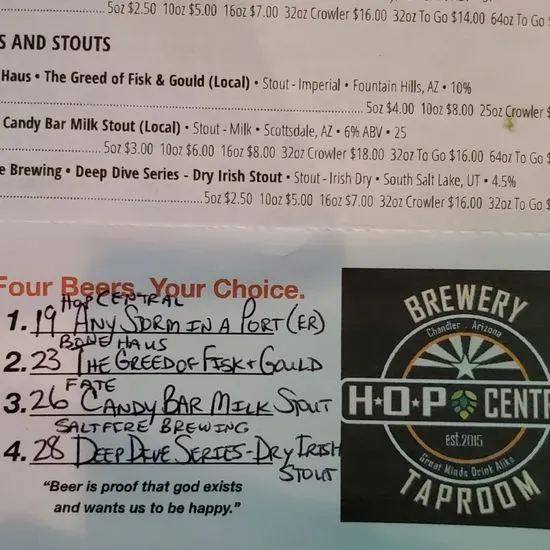 5oz $2.50 10oz $5.00 16oz $7.00 32oz Crowler $16.00 32oz To Go $14.00 64oz To Go
S AND STOUTS
Haus • The Greed of Fisk & Gould (Local) • Stout - Imperial • Fountain Hills, AZ • 10%
5oz $4.00 10oz $8.00 25oz Crowler $
Candy Bar Milk Stout (Local) • Stout - Milk • Scottsdale, AZ • 6% ABV • 25
5oz $3.00 10oz $6.00 16oz $8.00 32oz Crowler $18.00 32oz To Go $16.00 64oz To Go $
e Brewing • Deep Dive Series - Dry Irish Stout • Stout - Irish Dry • South Salt Lake, UT • 4.5%
5oz $2.50 10oz $5.00 16oz $7.00 32oz Crowler $16.00 32oz To Go $
Four Beers. Your Choice.
HOP CENTRAL
1. 19 ANY STORM IN A PORT(ER)
BONE HAUS
2. 23 THE GREED OF FISK + GOULD
FATE
3. 26 CANDY BAR MILK STOUT
SALTFIRE BREWING
4. 28 DEEP DIVE SERIES - DRY IRISH
STOUT
"Beer is proof that god exists
and wants us to be happy."
BREWERY
Chandler, Arizona
H★O★P CENT
est.2015
Great Minds Drink Alike
TAPROOM